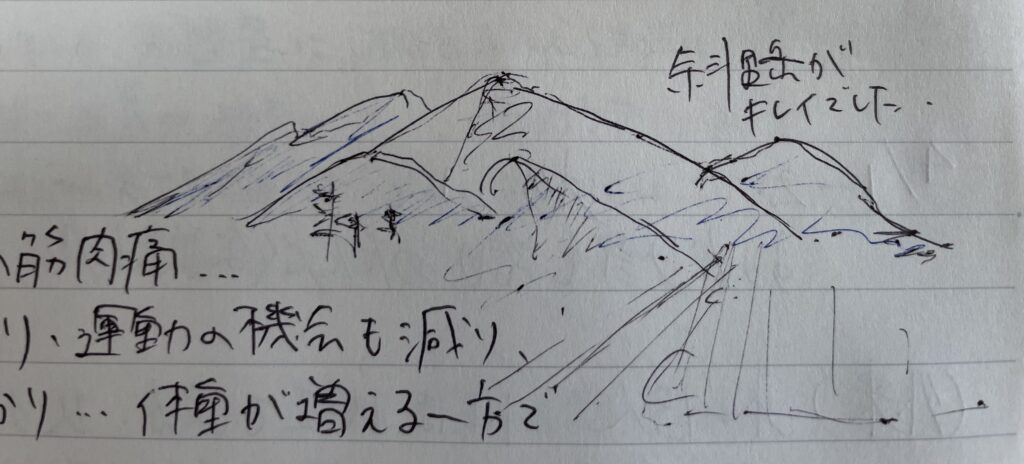 斜里岳が
キレイでした..
筋肉痛...
り、運動の機会も減り、
り... 体重が増える一方で